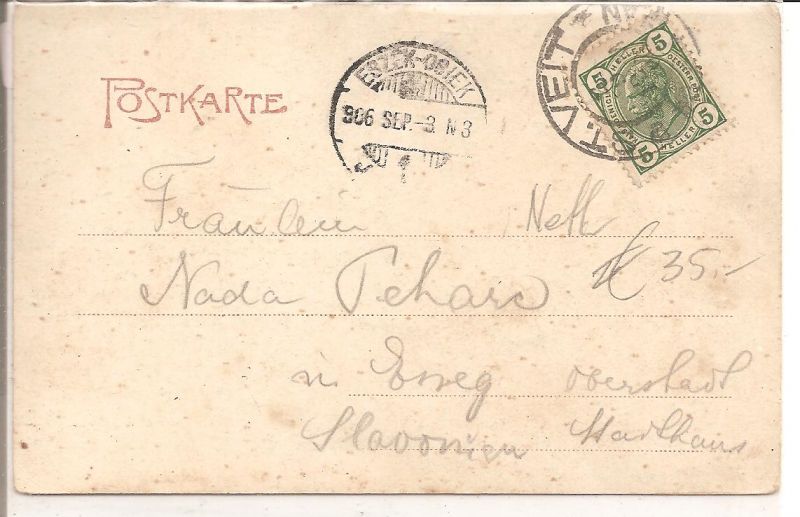 POSTKARTE
ESZEK-OSIEK
906 SEP.-3. N3
1
ST. VEIT
5 HELLER 5
5 HELLER 5
Fräulein
Nada Peharc
€ 35.-
in Esseg Oberstadt
Slavonien Stadthaus